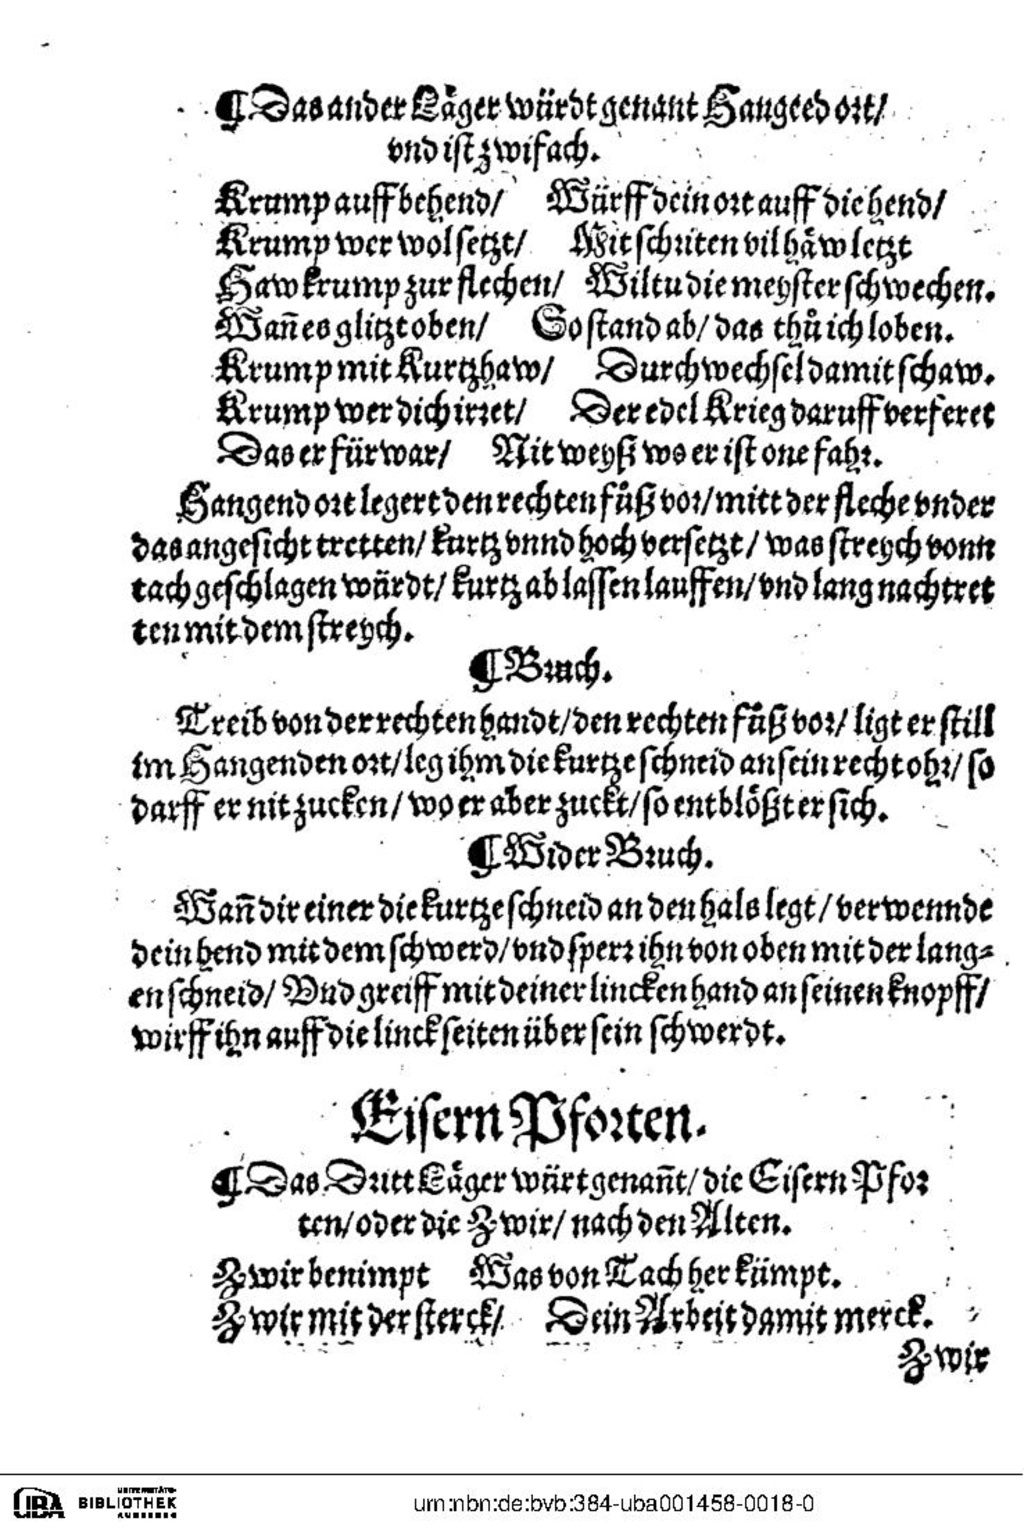 ¶ Das ander Läger würdt genant Hangeed ort/
vnd ist zwifach.
Krump auff behend/ Würff dein ort auff die hend/
Krump wer wol setzt/ Mit schriten vil häw letzt
Haw krump zur flechen/ Wiltu die meyster schwechen.
Wañ es glitzt oben/ So stand ab/ das thů ich loben.
Krump mit Kurtzhaw/ Durchwechsel damit schaw.
Krump wer dich irret/ Der edel Krieg daruff verferet
Das er fürwar/ Nit weyß wo er ist one fahr.
Hangend ort legert den rechten fůß vor/ mitt der fleche vnder
das angesicht tretten/ kurtz vnnd hoch versetzt/ was streych vonn
tach geschlagen würdt/ kurtz ab lassen lauffen/ vnd lang nachtret
ten mit dem streych.
¶ Bruch.
Treib von der rechten handt/ den rechten fůß vor/ ligt er still
im Hangenden ort/ leg ihm die kurtze schneid an sein recht ohr/ so
darff er nit zucken/ wo er aber zuckt/ so entblößt er sich.
¶ Wider Bruch.
Wañ dir einer die kurtze schneid an den hals legt/ verwennde
dein hend mit dem schwerd/ vnd sperr ihn von oben mit der lang-
en schneid/ Vnd greiff mit deiner lincken hand an seinen knopff/
wirff ihn auff die linck seiten über sein schwerdt.
Eisern Pforten.
¶ Das Dritt Läger würt genañt/ die Eisern Pfor
ten/ oder die Zwir/ nach den Alten.
Zwir benimpt Was von Tach her kümpt.
Zwir mit der sterck/ Dein Arbeit damit merck.
Zwir
UBA UNIVERSITÄTS-
BIBLIOTHEK
AUGSBURG
urn:nbn:de:bvb:384-uba001458-0018-0